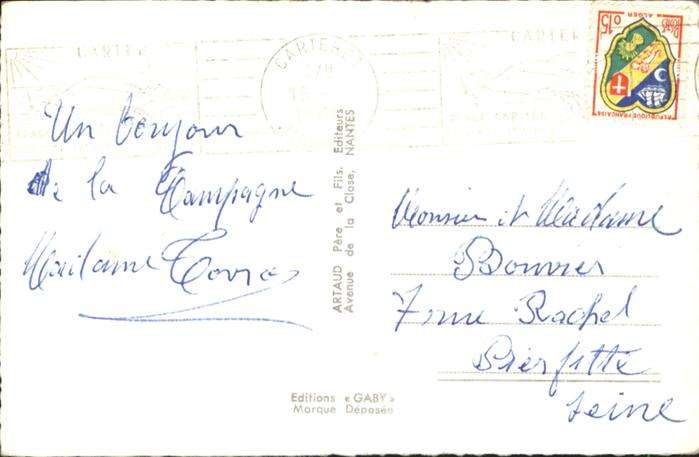 CARTERET
Un bonjour
de la Campagne
Madame
ARTAUD Père et Fils, Editeurs
Avenue de la Close, NANTES
Editions « GABY »
Marque Déposée
0,15
ALGER
REPUBLIQUE FRANÇAISE
Monsieur et Madame
Bouvier
7 rue Rachel
Pierfitte
Seine